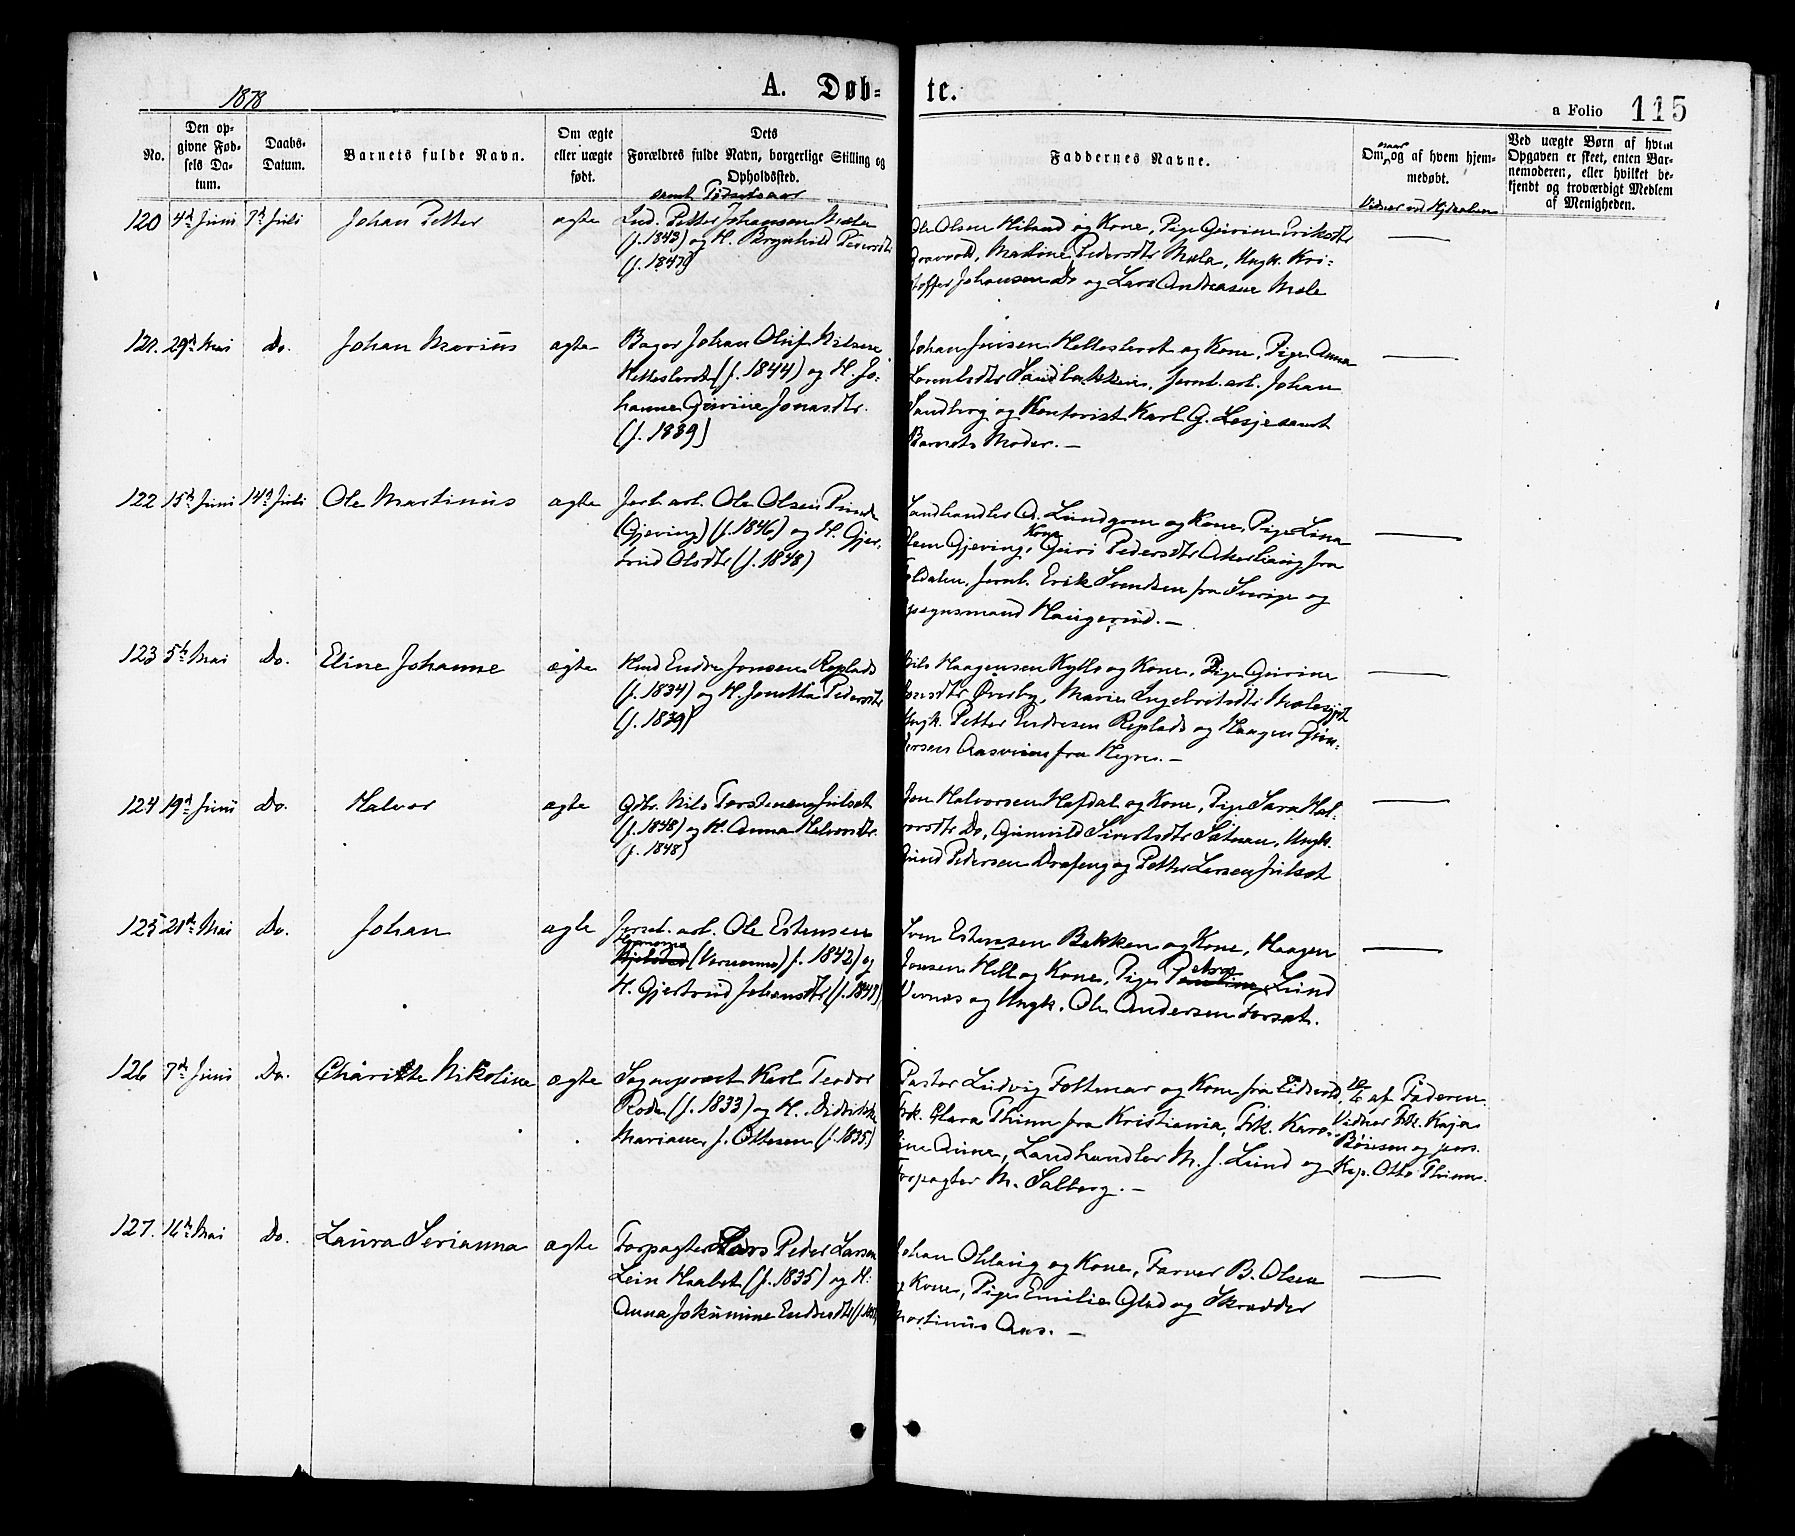 1878
A. Døb- te.
a Folio 115
No.
Den op-
givne Fød-
sels Da-
tum.
Daabs-
Datum.
Barnets fulde Navn.
Om ægte
eller uægte
født.
Dets
Forældres fulde Navn, borgerlige Stilling og
Opholdssted.
samt Fødselsaar
Faddernes Navne.
Om naar og af hvem hjem-
medøbt.
Ved uægte Børn af hvem
Opgaven er skeet, enten Bar-
nemoderen, eller hvilket be-
kjendt og troværdigt Medlem
af Menigheden.
120 4de Juni 7de Juli Johan Petter ægte Ind. Petter Johansen Mæle
(f. 1843) og H. Brynhild Pedersdtr
(f. 1847)
Ole Olsen Hiland og Kone, Pige Gurine Eriksdtr
Gravvold, Martine Pedersdtr Mæla, Ungk. Kri-
stoffer Johansen Do og Lars Andreasen Mæle
121. 29de Mai Do. Johan Marius ægte Bager Johan Oluf Nilsen
(f. 1844) og H. Jo-
hanne Gurine Jonasdtr.
(f. 1839)
Johan Jensen og Kone, Pige Anna
Sandbakken, Jernb. arb. Johan
Sandberg og Kontorist Karl G. Lesje samt
Barnets Moder. —
122 15de Juni 14de Juli Ole Martinus ægte Jerb. arb. Ole Olsen
(Gjeving) (f. 1846) og H. Gjer-
trud Olsdtr (f. 1848)
Landhandler A. Lundgren og Kone, Pige Lina
Olsen Gjeving, Kone Guri Pedersdtr fra
Foldalen, Jernb. Erik Svendsen fra Sverige og
Opsynsmand Haugerud. —
123 5te Mai Do. Eline Johanne ægte Hmd Endre Jonsen Replads
(f. 1834) og H. Jonetta Pedersdtr
(f. 1839)
Nils Haagensen Kyllo og Kone, Pige Gurine
Jonsdtr Øvreby, Marie Ingebrigtsdtr
Ungk. Petter Endresen Replads og Haagen Gun-
dersen Aasvien fra Hegre. —
124 19de Juni Do. Halvor ægte Gdbr. Nils Torstensen Julset
(f. 1848) og H. Anna Halvorsdtr.
(f. 1848)
Jon Halvorsen Hofdal og Kone, Pige Sara Hal-
vorsdtr Do, Gunnild Sivertsdtr Sætnan, Ungk.
Gunnd Pedersen Drøfeng og Petter Larsen Julset
125 21de Mai Do. Johan ægte Jernb. arb. Ole Estensen
(Værnæsmo) f. 1842) og
H. Gjertrud Johansdtr (f. 1849)
Sven Estensen Bakken og Kone, Haagen
Jonsen Hell og Kone, Pige Petra Lund
Vernæs og Ungk. Ole Andersen Forset.
126 7de Juni Do. Charitte Nikoline ægte Sognepræst Karl Teodor
Rode (f. 1833) og H. Didrikke
Mariane f. Ottesen (f. 1835)
Pastor Ludvig Feltmar og Kone fra Eidsvold,
Frk. Clara Thinn fra Kristiania, Frk. Karo-
line Anine, Landhandler M. J. Lund og
Forpagter M. Salberg. —
af Faderen.
Vidner Frk. Kaja
Boiesen og pers.
Kap. Otto Thinn.
127. 16de Mai Do. Laura Serianna ægte Forpagter Lars Peder Larsen
Lein Haabet (f. 1835) og H.
Anna Jokumine Endresdtr
Johan Ohlaug og Kone, Farver B. Olsen
og Kone, Pige Emilie Glad og Skrædder
Martinus Aas. —